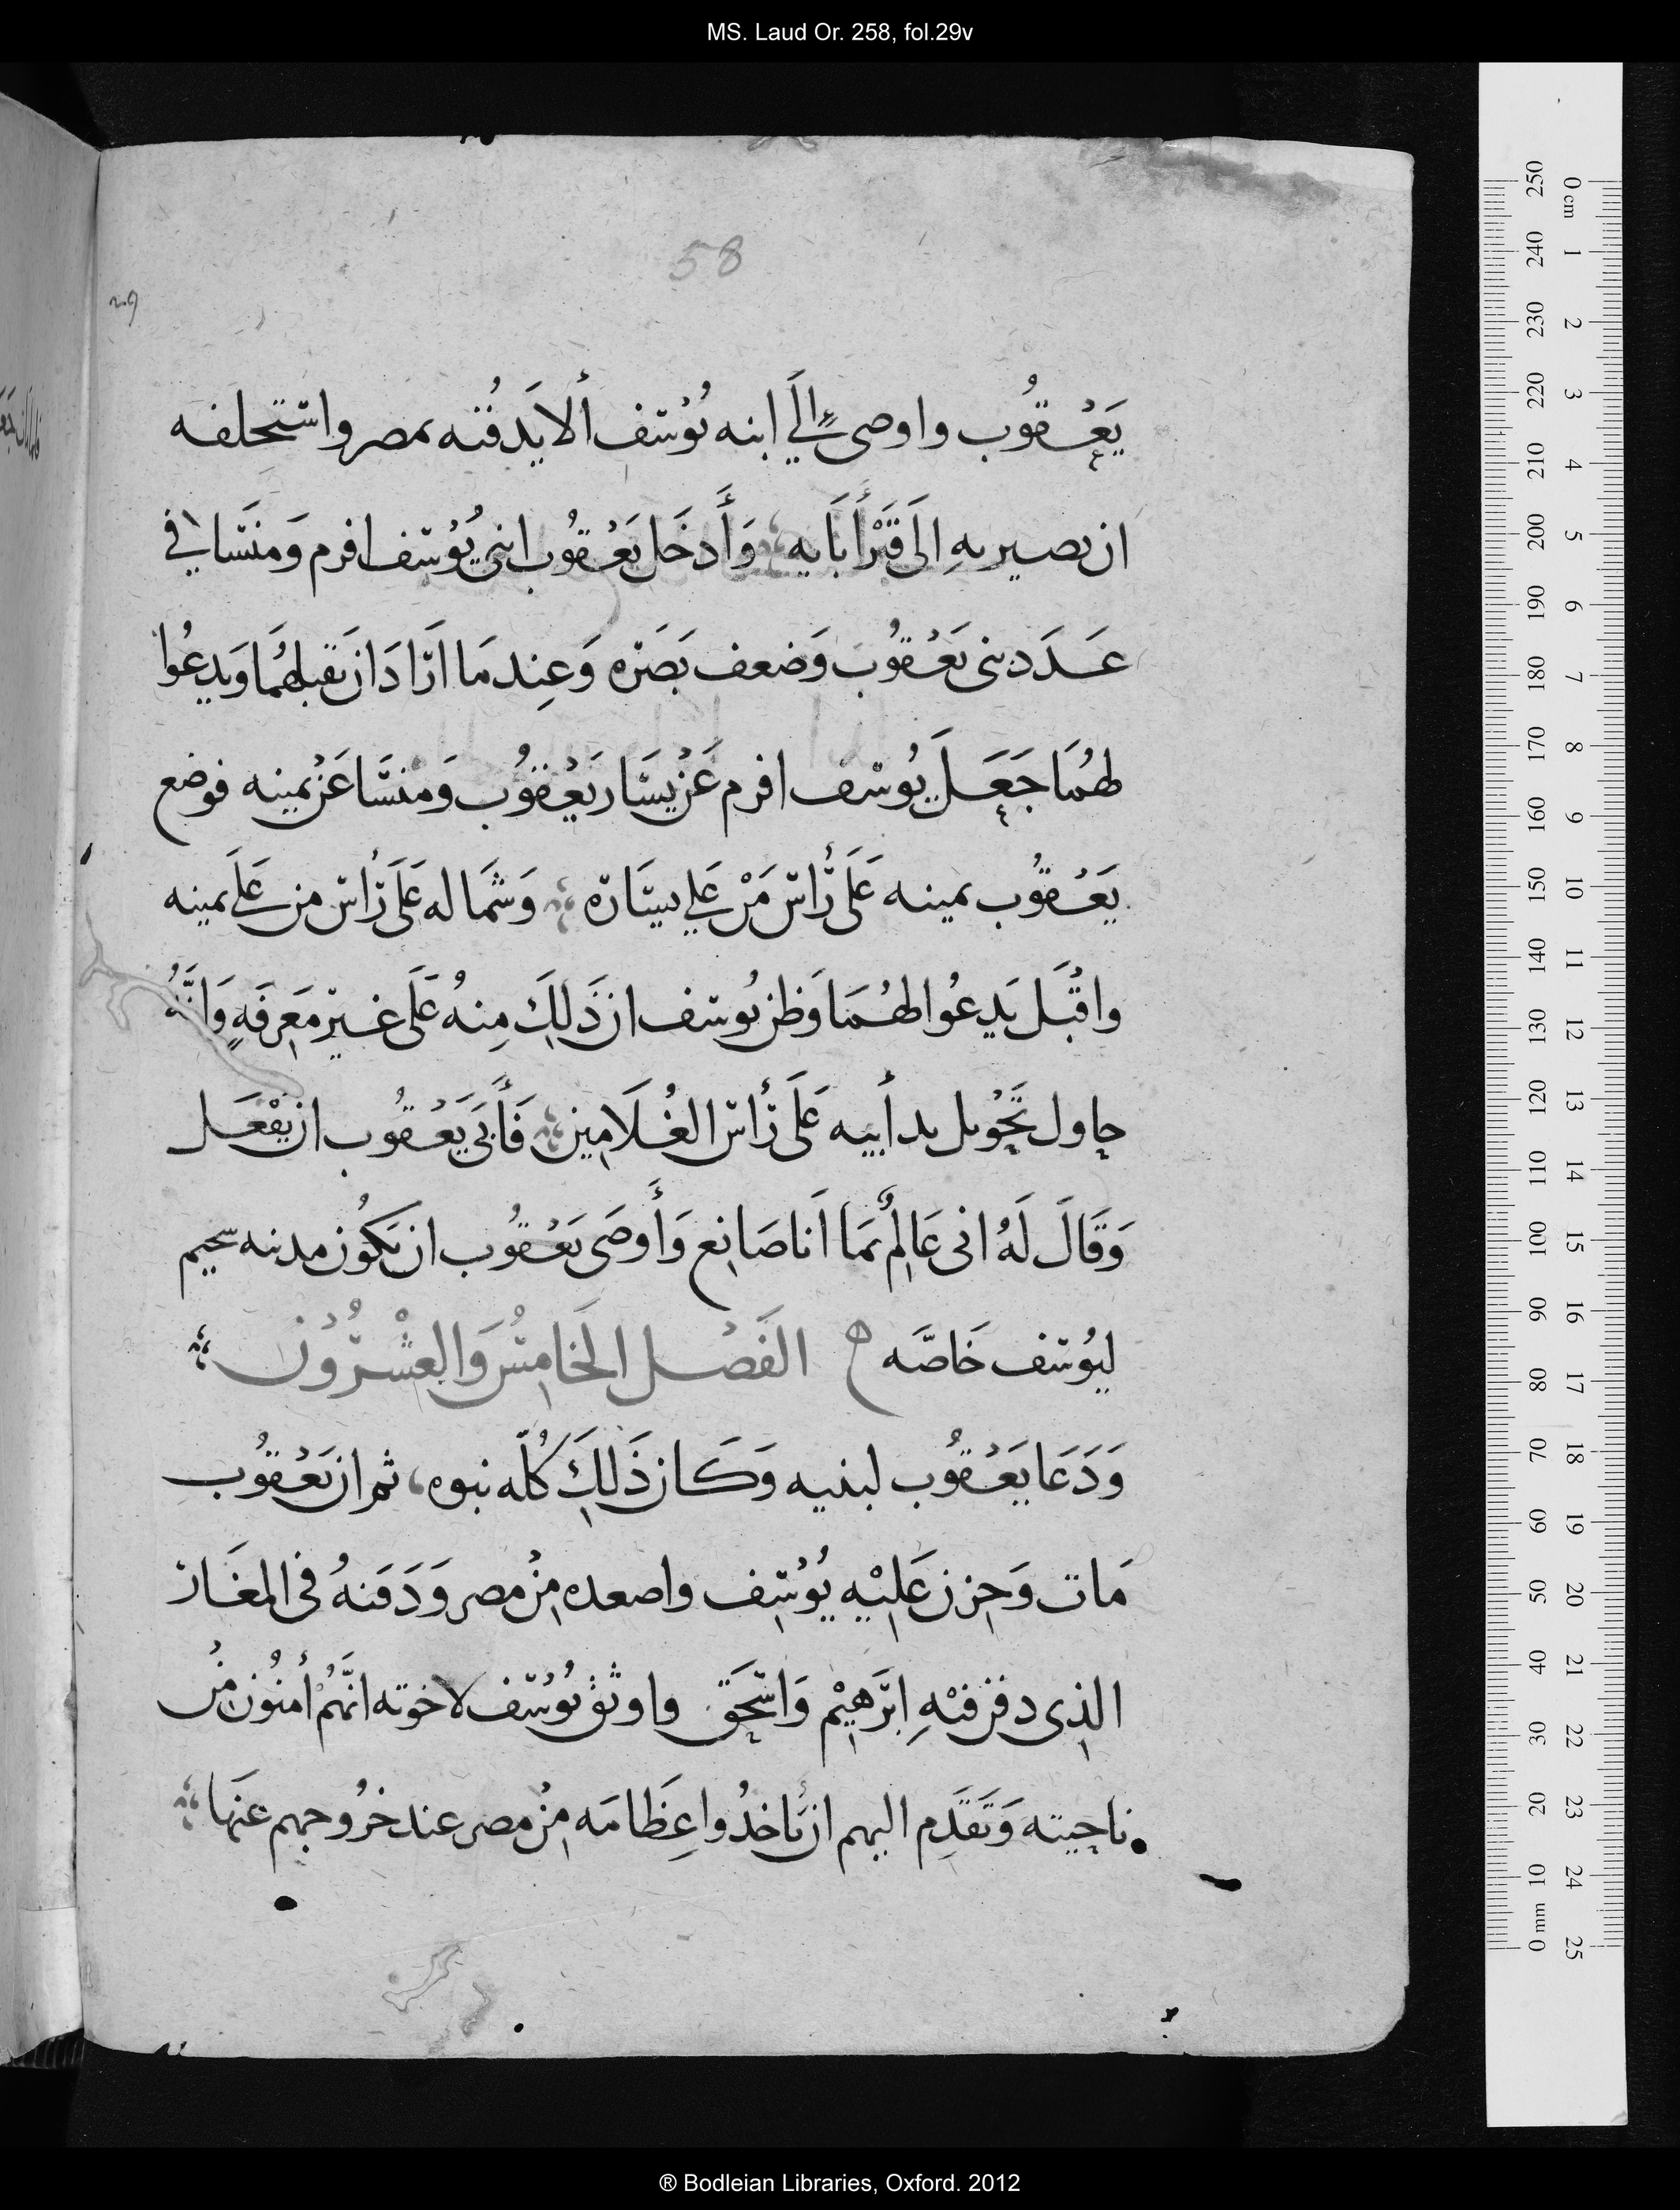 MS. Laud Or. 258, fol.29v
58
29
يَعْقُوب واوصى إلَي ابنه يُوْسف ألا يَدفُنه بمصر واستحلفه
ان يصير بهِ الَى قَبْر أَبَايه وَأَدخَل يَعْقُوب ابني يُوْسف افرم وَمنَسَّا في
عَدَد بني يَعْقُوب وَضعف بَصَره وَعِند مَا ارَادَ ان يقبلهُمَا وَيدعُوا
لهُمَا جَعَلَ يُوْسف افرم عَنْ يسَار يَعْقُوب وَمنسَّا عَنْ يمينه فوضع
يَعْقُوب يمينه عَلَى رَأس مَنْ عَلي يسَاره وَشمَاله عَلَى رَأس من عَلَي يمينه
واقْبَل يَدعُوا لهُمَا وَظن يُوسف ان ذَلِكَ مِنهُ عَلَى غير مَعرِفَهٍ وَانَّهُ
حاول تَحْويل يد أبيه عَلَى رَأس الغُلَامِين فَأَبَى يَعْقُوب ان يفْعَل
وَقَالَ لَهُ انى عَالِمٌ بمَا اَنا صَانِع وَأَوصَى يَعْقُوب ان تكُون مدينه سحيم
ليُوسف خَاصَّه الفَصْل الخَامِسُ وَالعِشْرُوْن
وَدَعَا يَعْقُوب لبنيه وَكَان ذَلِكَ كُلّه نبوه ثم ان يَعْقُوب
مَات وَحزن عَليْه يُوْسِف واصعده مِنْ مصر وَدَفنهُ في المغَار
الذِى دفن فيْهِ ابرَهِيْم وَاسحَق واوثق يُوْسف لاخوته انَّهُمْ أمنُون مْن
ناحيته وَتَقَدِم اليهم ان يَأخذُوا عِظَامَه مِنْ مصر عند خرُوجهم عنهَا
0 cm 1 2 3 4 5 6 7 8 9 10 11 12 13 14 15 16 17 18 19 20 21 22 23 24 25
250 240 230 220 210 200 190 180 170 160 150 140 130 120 110 100 90 80 70 60 50 40 30 20 10 0 mm
® Bodleian Libraries, Oxford. 2012